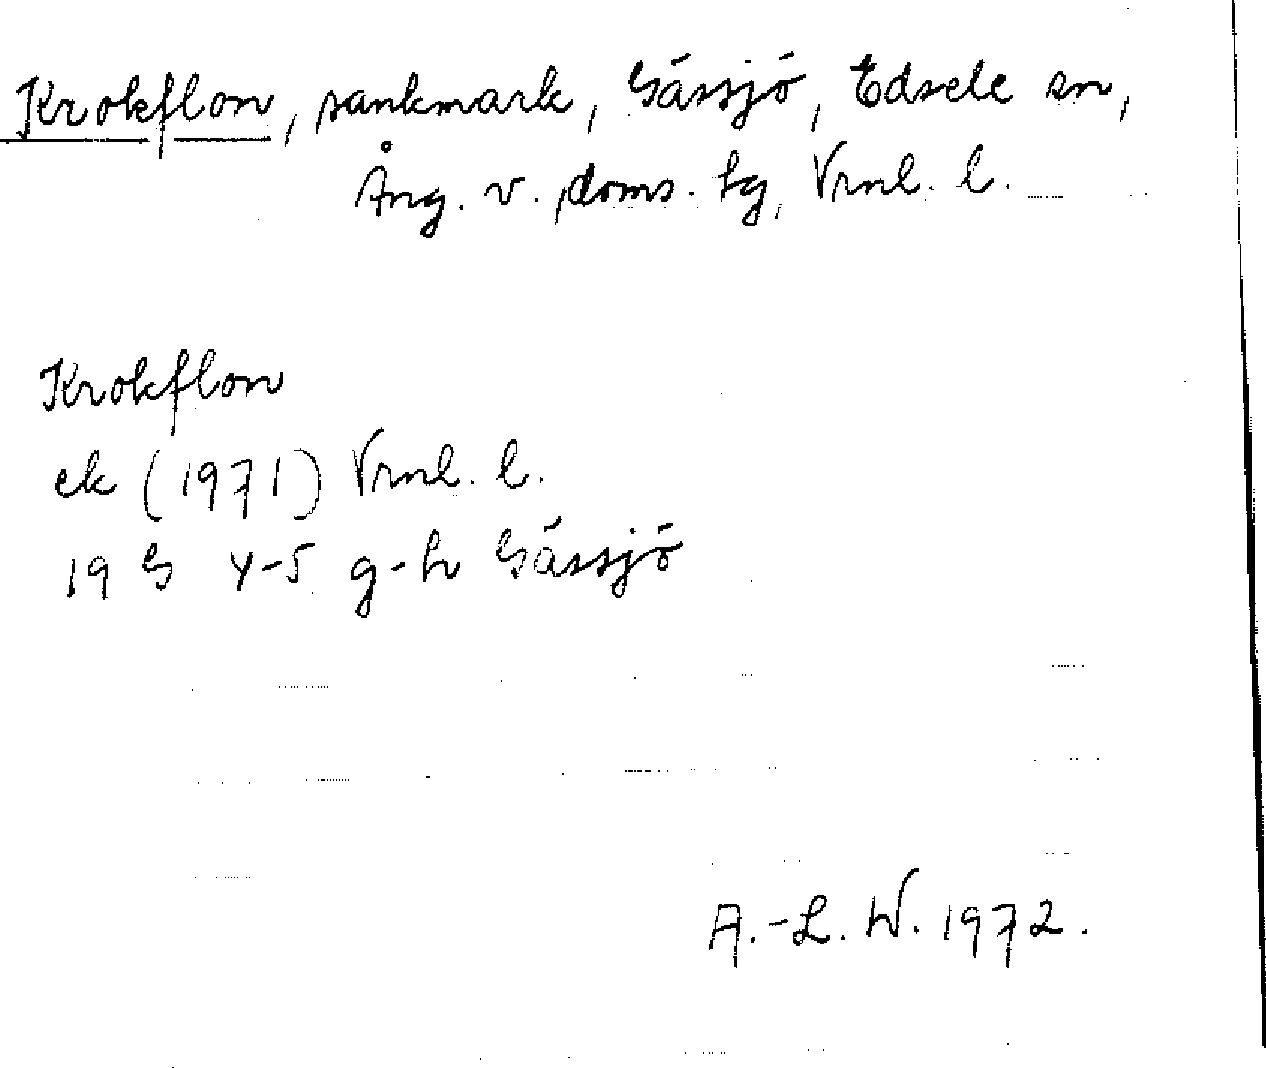 Krokflon, sankmark, Gåssjö, Edsele sn,
Ång. v. doms. hg, Vrnl. l.
Krokflon
ek (1971) Vrnl. l.
19 G 4-5 g-h Gåssjö
A.-L. W. 1972.